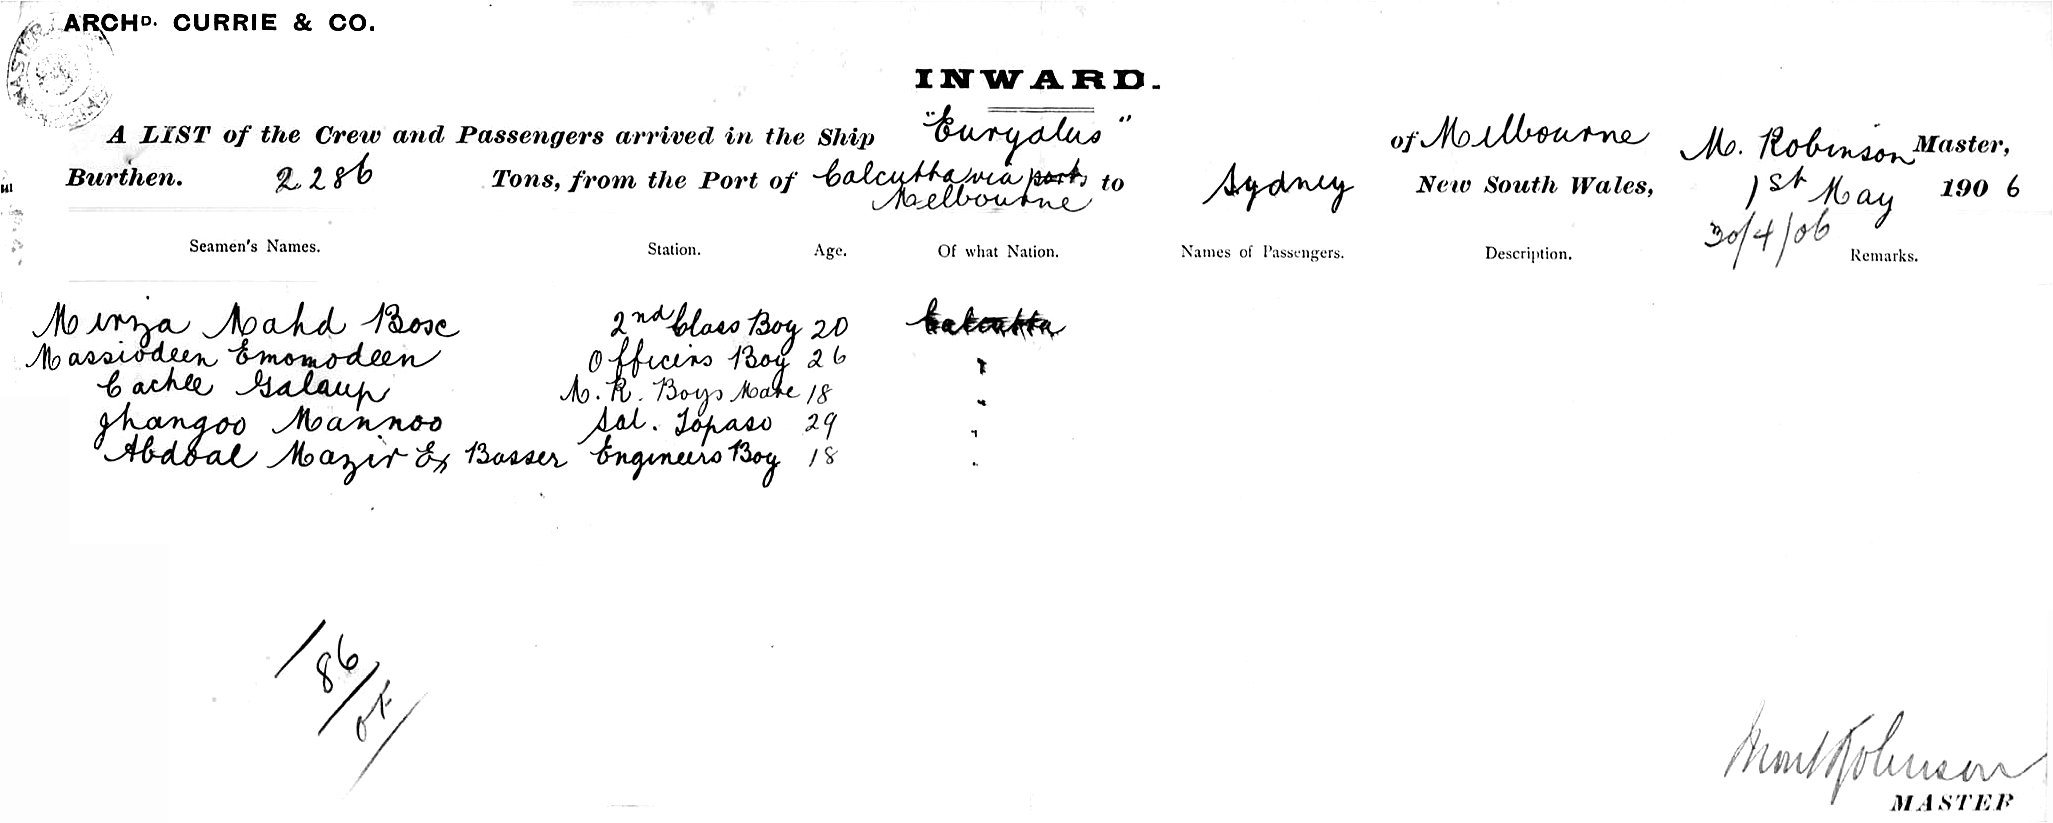 ARCHD. CURRIE & CO.
INWARD.
A LIST of the Crew and Passengers arrived in the Ship "Euryalus" of Melbourne M. Robinson Master,
Burthen. 2286 Tons, from the Port of Calcutta via ports Melbourne to Sydney New South Wales, 1st May 1906
30/4/06
Seamen's Names. Station. Age. Of what Nation. Names of Passengers. Description. Remarks.
Mirza Mahd Bose 2nd Class Boy 20 Calcutta
Massiodeen Emomodeen Officers Boy 26 "
Cachee Galaup M. R. Boys Mate 18 "
Jhangoo Mannoo Sal. Topass 29 "
Abdoal Mazir Ex Basser Engineers Boy 18 "
86
Robinson
MASTER